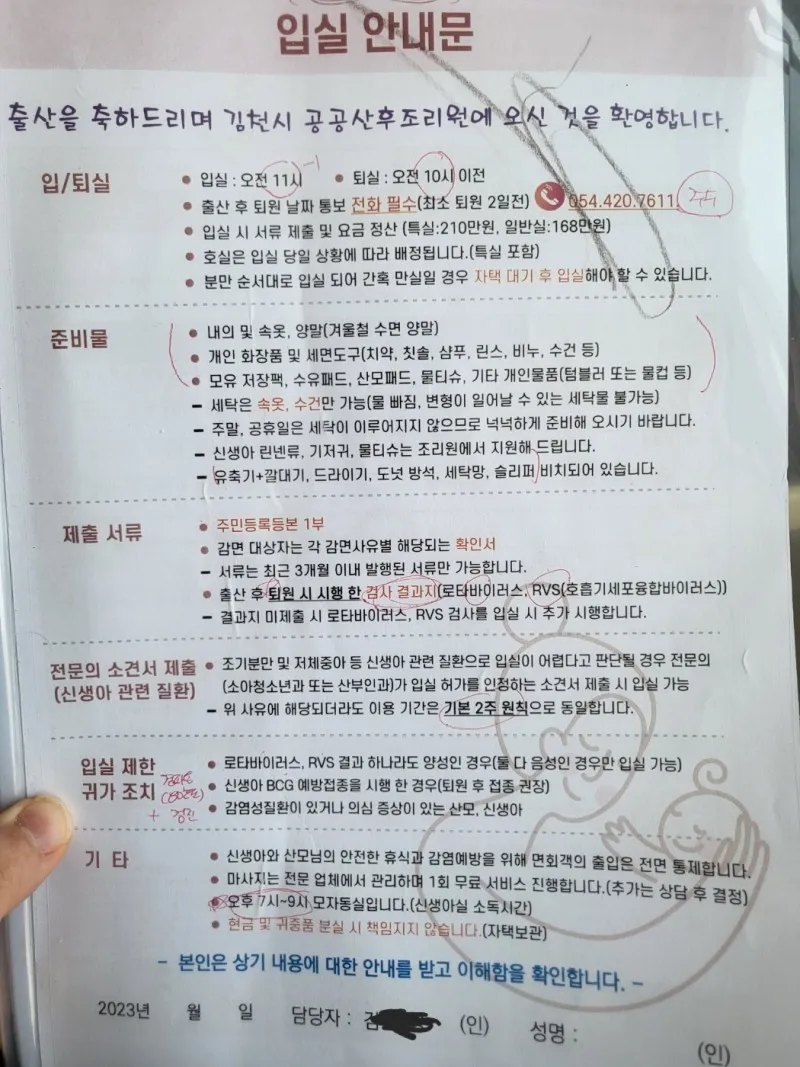 입실 안내문
출산을 축하드리며 김천시 공공산후조리원에 오신 것을 환영합니다.
입/퇴실
• 입실 : 오전 11시 • 퇴실 : 오전 10시 이전
• 출산 후 퇴원 날짜 통보 전화 필수(최소 퇴원 2일전) 054.420.7611.
• 입실 시 서류 제출 및 요금 정산 (특실:210만원, 일반실:168만원)
• 호실은 입실 당일 상황에 따라 배정됩니다.(특실 포함)
• 분만 순서대로 입실 되어 간혹 만실일 경우 자택 대기 후 입실해야 할 수 있습니다.
준비물
• 내의 및 속옷, 양말(겨울철 수면 양말)
• 개인 화장품 및 세면도구(치약, 칫솔, 샴푸, 린스, 비누, 수건 등)
• 모유 저장팩, 수유패드, 산모패드, 물티슈, 기타 개인물품(텀블러 또는 물컵 등)
– 세탁은 속옷, 수건만 가능(물 빠짐, 변형이 일어날 수 있는 세탁물 불가능)
– 주말, 공휴일은 세탁이 이루어지지 않으므로 넉넉하게 준비해 오시기 바랍니다.
– 신생아 린넨류, 기저귀, 물티슈는 조리원에서 지원해 드립니다.
– 유축기+깔대기, 드라이기, 도넛 방석, 세탁망, 슬리퍼 비치되어 있습니다.
제출 서류
• 주민등록등본 1부
• 감면 대상자는 각 감면사유별 해당되는 확인서
– 서류는 최근 3개월 이내 발행된 서류만 가능합니다.
• 출산 후 퇴원 시 시행 한 검사 결과지(로타바이러스, RVS(호흡기세포융합바이러스))
– 결과지 미제출 시 로타바이러스, RVS 검사를 입실 시 추가 시행합니다.
전문의 소견서 제출
(신생아 관련 질환)
• 조기분만 및 저체중아 등 신생아 관련 질환으로 입실이 어렵다고 판단될 경우 전문의
(소아청소년과 또는 산부인과)가 입실 허가를 인정하는 소견서 제출 시 입실 가능
– 위 사유에 해당되더라도 이용 기간은 기본 2주 원칙으로 동일합니다.
입실 제한
귀가 조치
• 로타바이러스, RVS 결과 하나라도 양성인 경우(둘 다 음성인 경우만 입실 가능)
• 신생아 BCG 예방접종을 시행 한 경우(퇴원 후 접종 권장)
• 감염성질환이 있거나 의심 증상이 있는 산모, 신생아
기 타
• 신생아와 산모님의 안전한 휴식과 감염예방을 위해 면회객의 출입은 전면 통제합니다.
• 마사지는 전문 업체에서 관리하며 1회 무료 서비스 진행합니다.(추가는 상담 후 결정)
• 오후 7시~9시 모자동실입니다.(신생아실 소독시간)
• 현금 및 귀중품 분실 시 책임지지 않습니다.(자택보관)
– 본인은 상기 내용에 대한 안내를 받고 이해함을 확인합니다. –
2023년 월 일 담당자 : (인) 성명 :
(인)